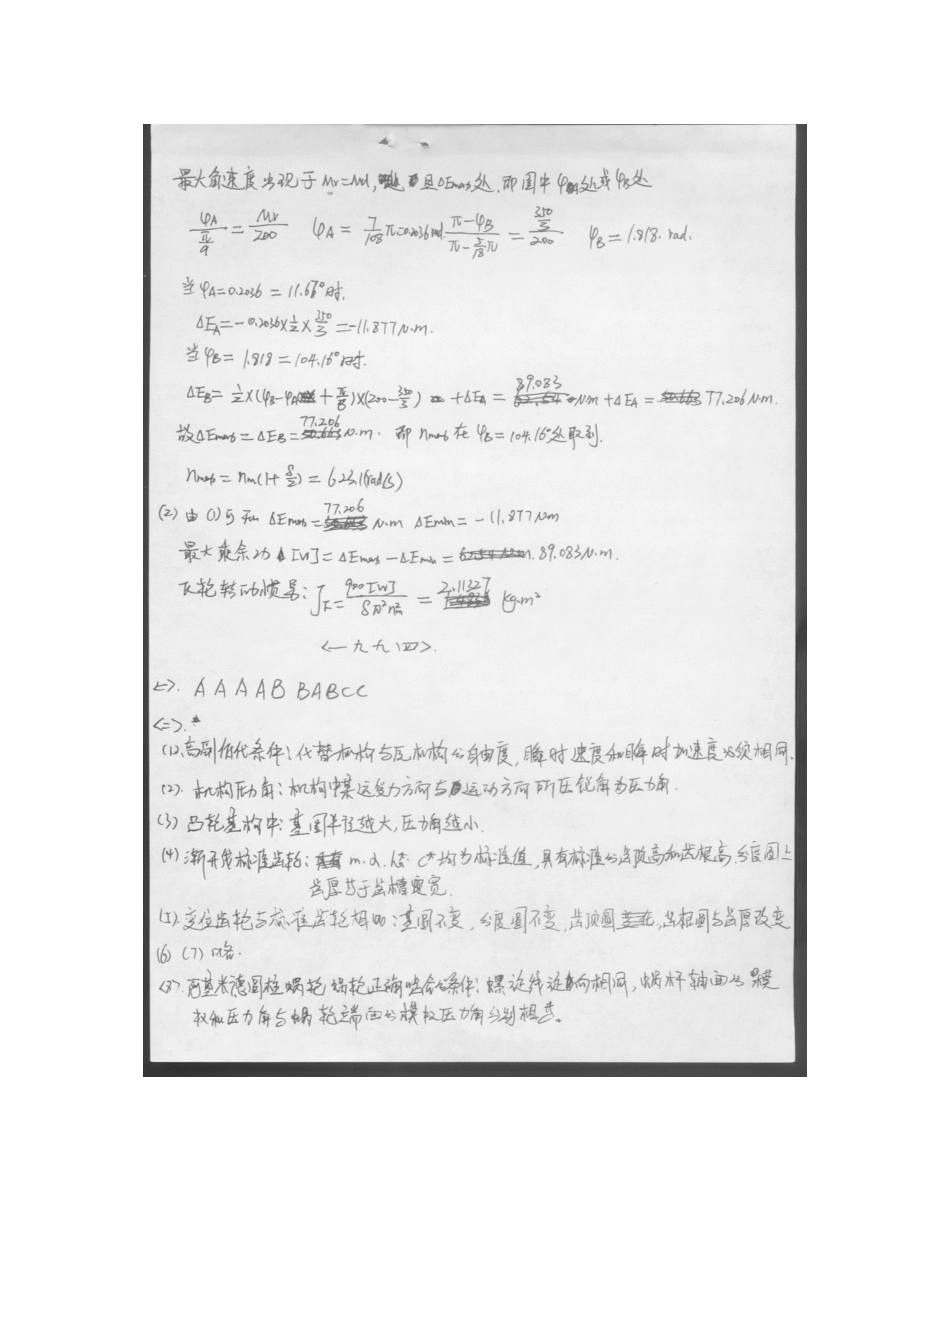 最大角速度出现于 Mr=Md, 且ΔEmax处, 即图中φA处或φB处
φA/(π/9) = Mr/200 φA = 7/108 π=0.2036 rad. (π-φB)/(π-5/18π) = (350/3)/200 φB = 1.818. rad.
当 φA=0.2036 = 11.67°时,
ΔEA=-0.2036×1/2×350/3 =-11.877N.m.
当 φB= 1.818 = 104.16°时.
ΔEB= 1/2×(φB-φA+π/6)×(200-350/3) +ΔEA = 89.083 N.m +ΔEA = 77.206 N.m.
故ΔEmax = ΔEB = 77.206 N.m. 即 nmax 在 φB=104.16°处取到.
nmax = nm(1+δ/2) = 623.1(rad/s)
(2) 由(1)可知 ΔEmax = 77.206 N.m ΔEmin = -11.877 N.m
最大乘余功 [W] = ΔEmax - ΔEmin = 89.083N.m.
飞轮转动惯量: JF= 900[W]/(δπ²n²) = 2.11327 kg.m²
<一九九四>.
<一>. A A A A B B A B C C
<二>.
(1).高副低代条件: 代替机构与原机构的自由度, 瞬时速度和瞬时加速度必须相同.
(2). 机构压力角: 机构中某运受力方向与运动方向所压锐角为压力角.
(3) 凸轮基构中: 基圆半径越大, 压力角越小.
(4) 渐开线标准齿轮: m. α. ha* c*均为标准值, 具有标准的齿顶高和齿根高, 分度圆上
齿厚等于齿槽宽.
(5). 变位齿轮与标准齿轮相比: 基圆不变, 分度圆不变, 齿顶圆, 齿根圆与齿厚改变
(6) (7) 略.
(8). 阿基米德圆柱蜗轮蜗轮正确啮合条件: 螺旋线旋向相同, 蜗杆轴面的模
数和压力角与蜗轮端面的模数压力角分别相等。